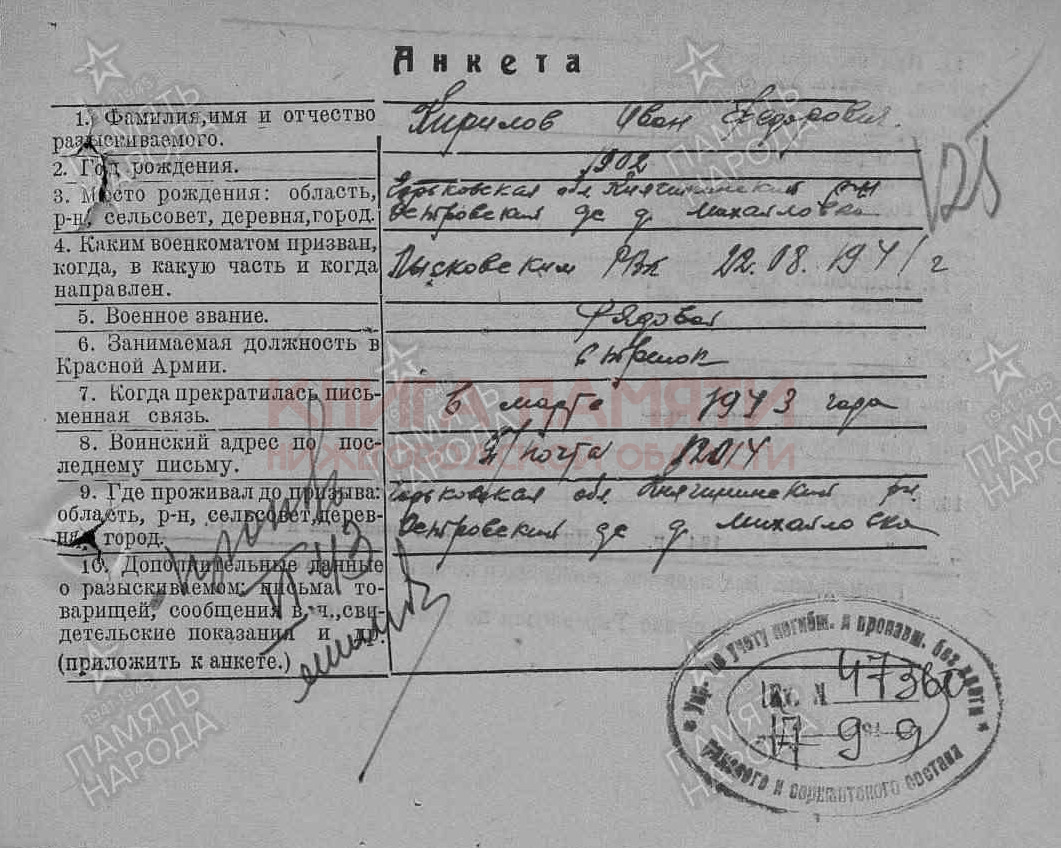 Анкета
1. Фамилия, имя и отчество разыскиваемого.
Кирилов Иван Федорович.
2. Год рождения.
1902
3. Место рождения: область, р-н, сельсовет, деревня, город.
Горьковская обл Княгининский рн
Островский с/с д. Михайловка
4. Каким военкоматом призван, когда, в какую часть и когда направлен.
Лысковским РВК 22.08.1941 г
5. Военное звание.
Рядовой
6. Занимаемая должность в Красной Армии.
стрелок
7. Когда прекратилась письменная связь.
6 марта 1943 года
8. Воинский адрес по последнему письму.
П/почта 12014
9. Где проживал до призыва: область, р-н, сельсовет, деревня, город.
Горьковская обл. Княгининский рн
Островский с/с д. Михайловка
10. Дополнительные данные о разыскиваемом: письма товарищей, сообщения в/ч., свидетельские показания и др. (приложить к анкете.)
Упр. по учету погибш. и пропавш. без вести
рядового и сержантского состава
Вх. №
КНИГА ПАМЯТИ
НИЖЕГОРОДСКОЙ ОБЛАСТИ
ПАМЯТЬ НАРОДА